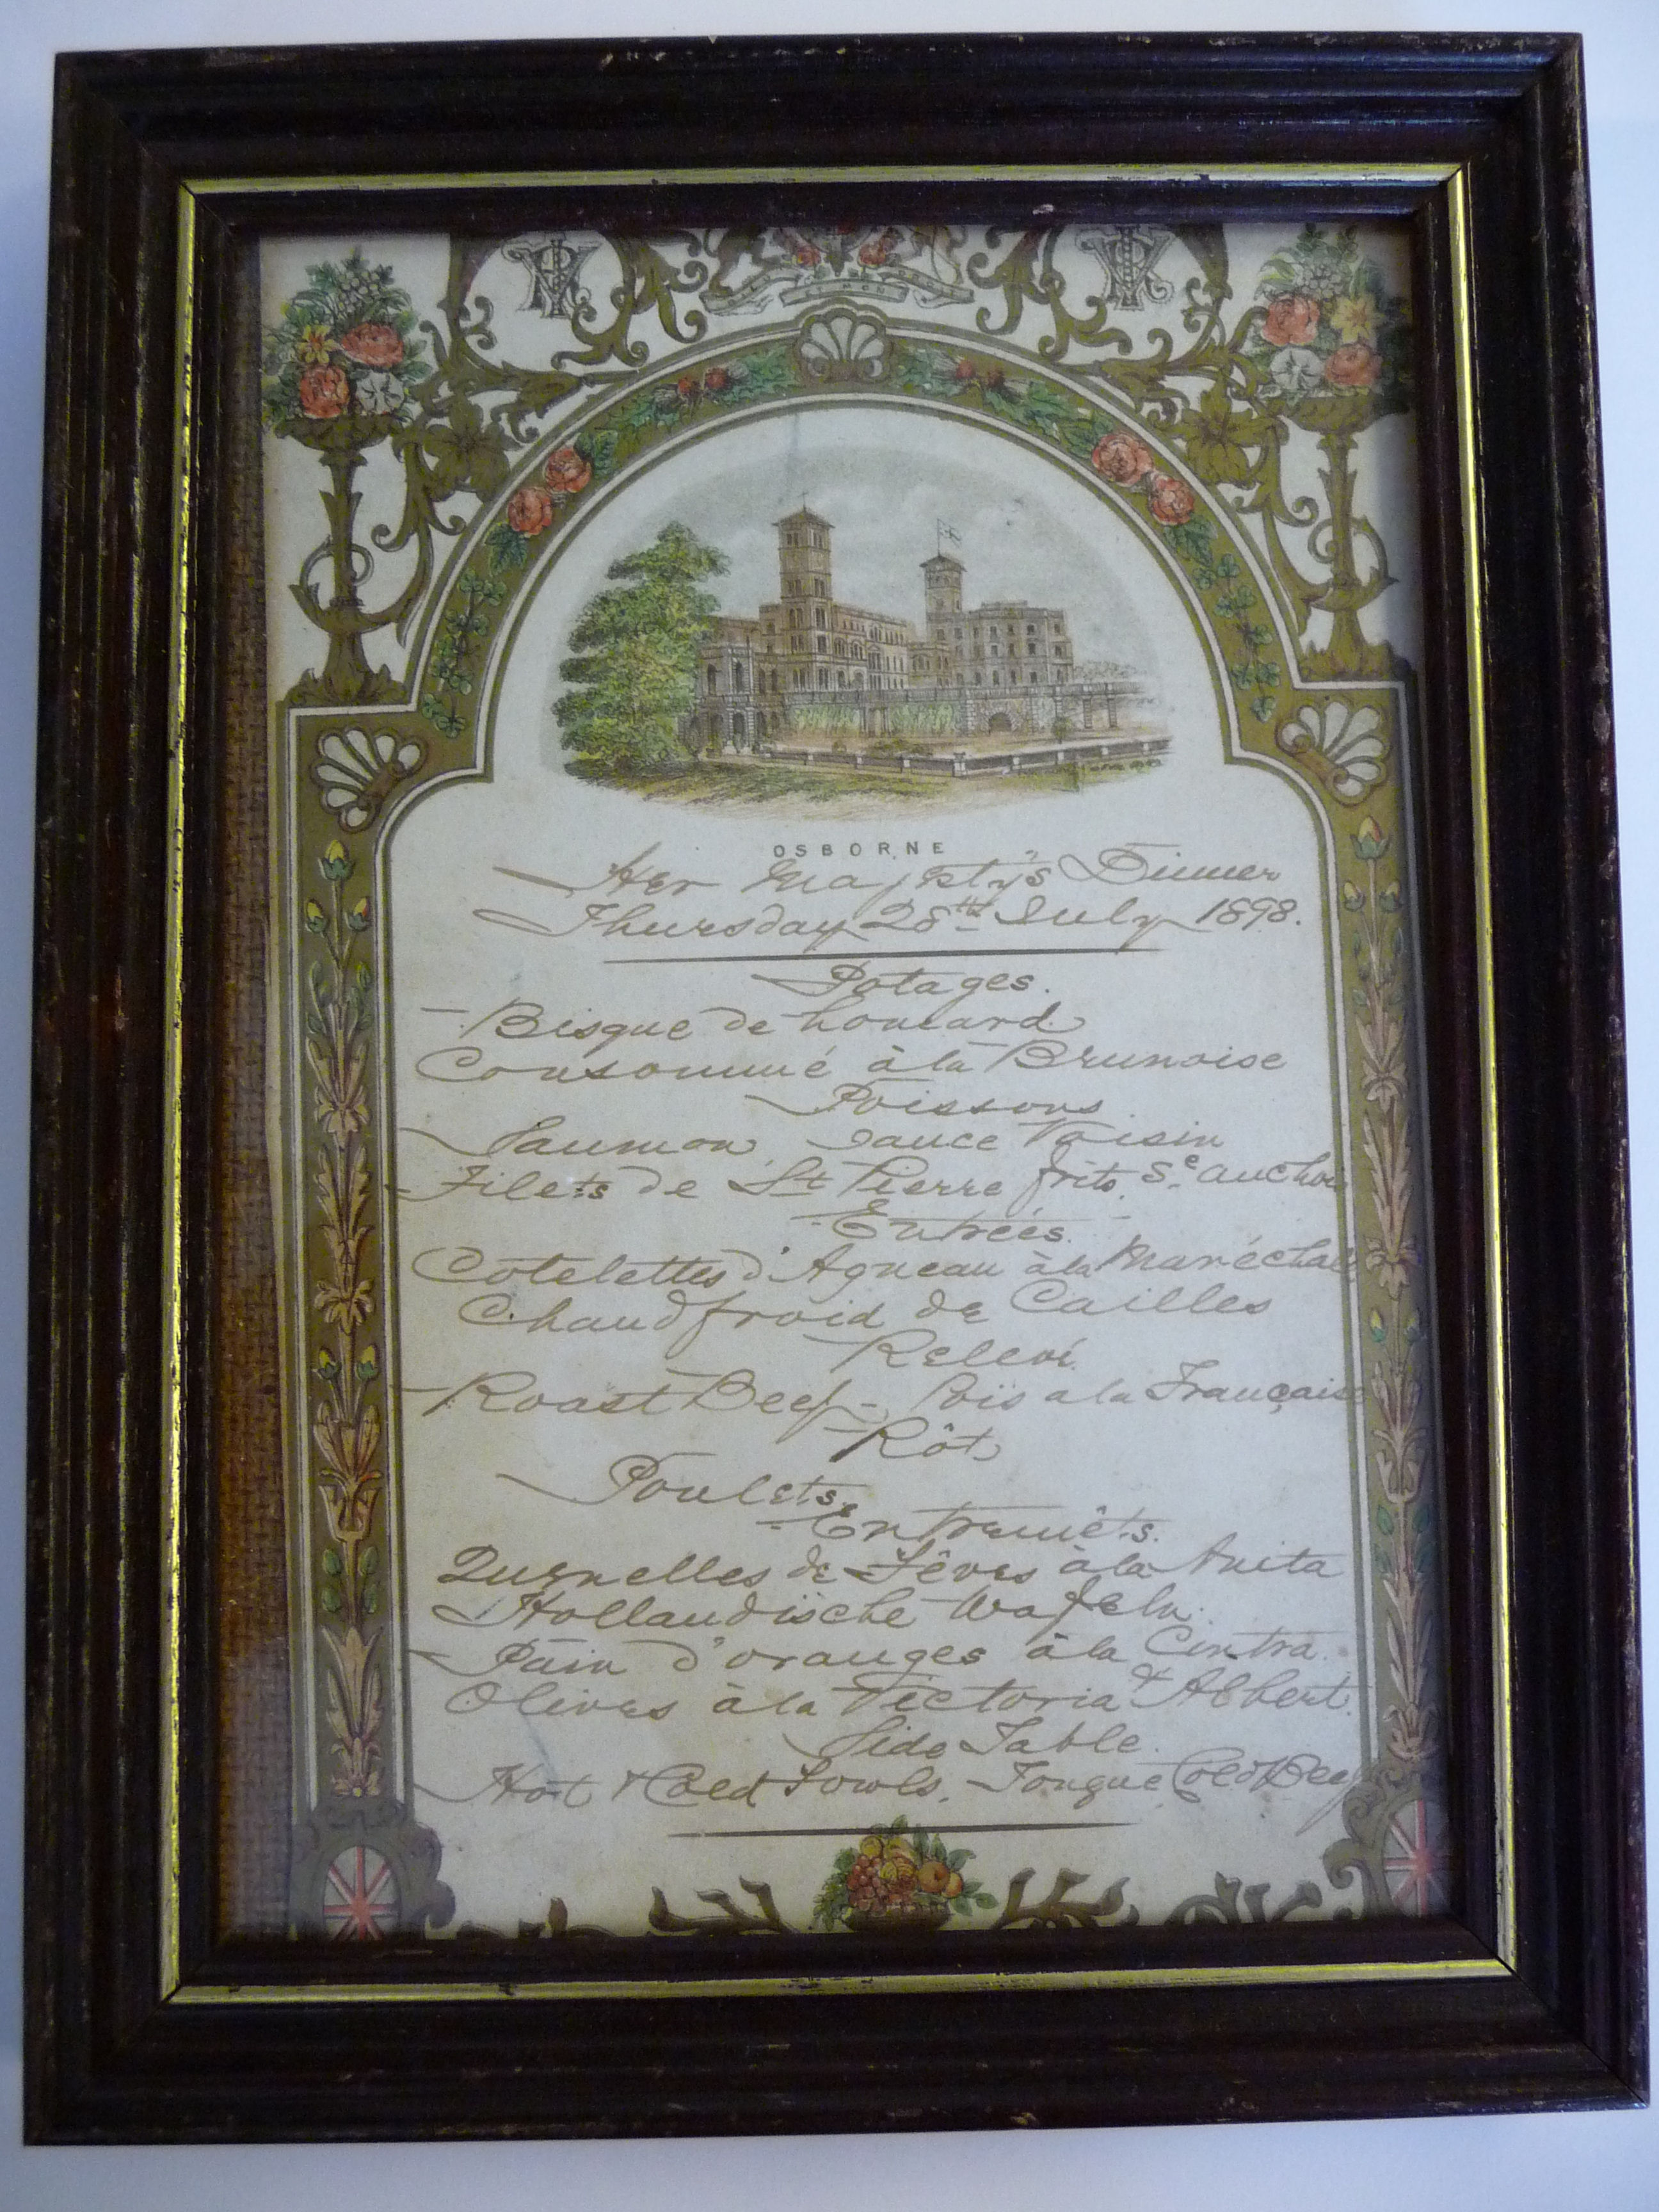 ET MON
OSBORNE
Her Majesty's Dinner
Thursday 28th July 1898.
Potages.
Bisque de homard
Consommé à la Brunoise
Poissons
Saumon sauce Voisin
Filets de St Pierre frits. Se anchois
Entrées.
Cotelettes d'Agneau à la Maréchale
Chaudfroid de Cailles
Relevé.
Roast Beef - Pois a la Française
Rôt
Poulets.
Entremêts.
Quenelles de Fêves à la Anita
Hollandische Wafeln.
Pain d'oranges à la Cintra.
Olives à la Victoria & Albert.
Side Table.
Hot & Cold Fowls. Tongue Cold Beef